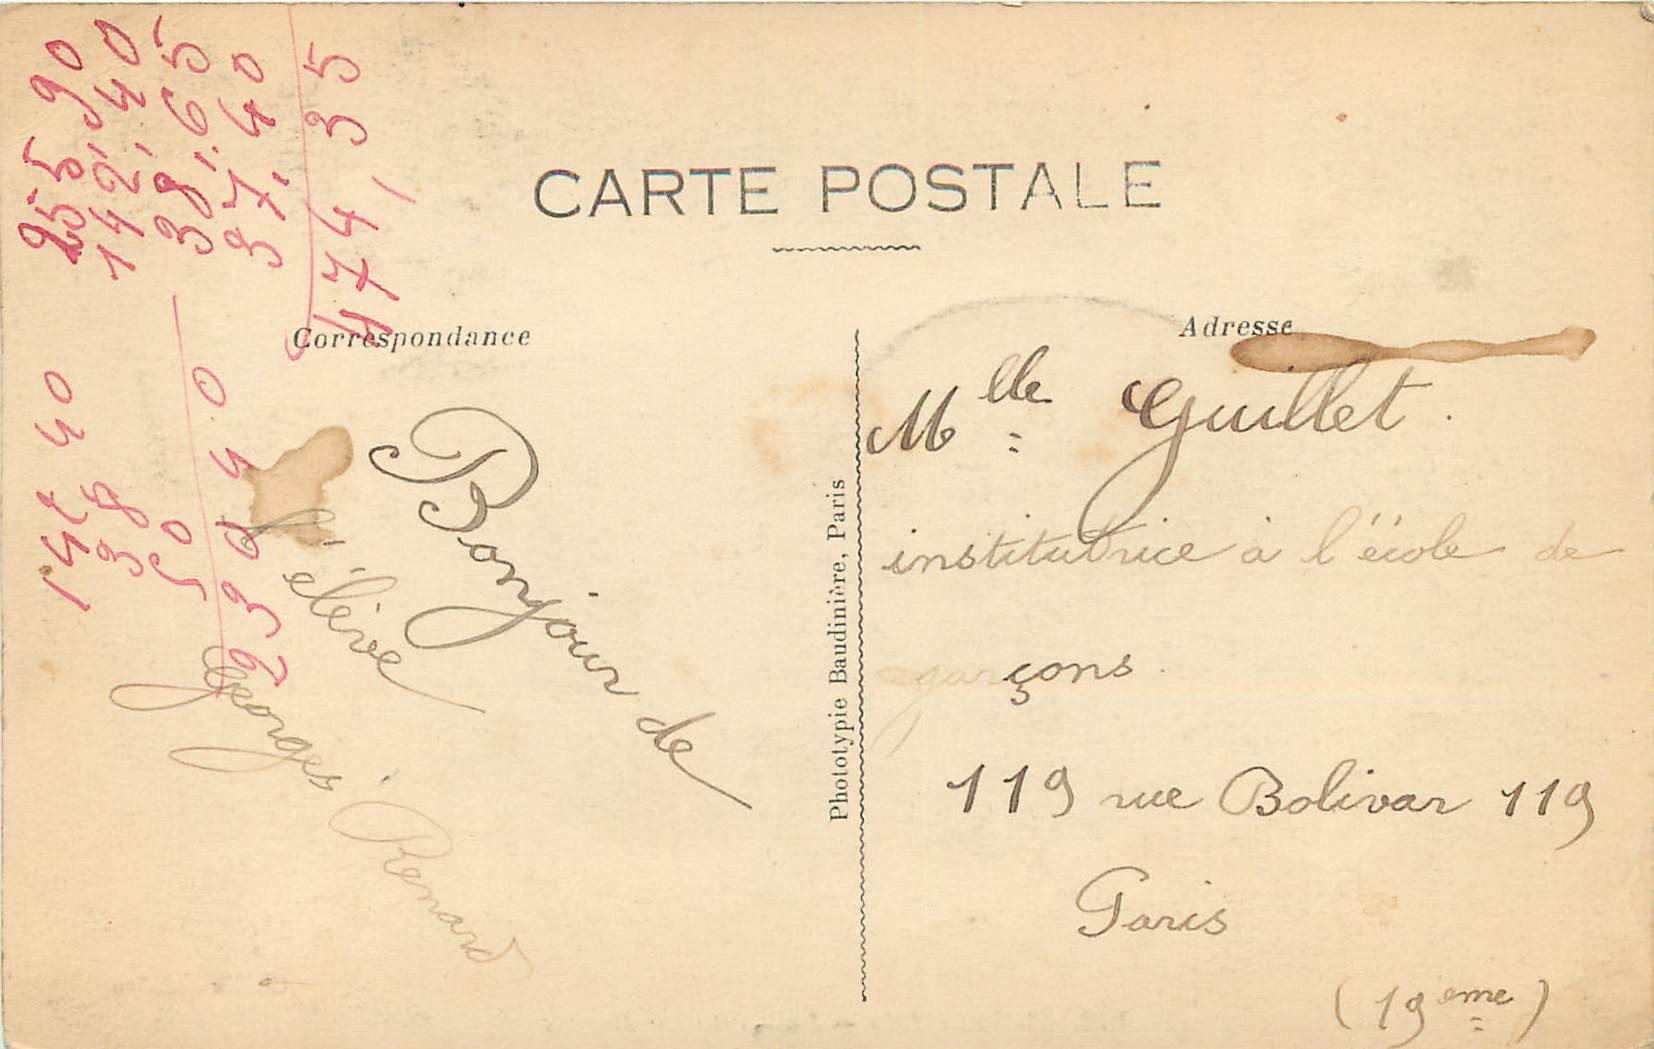 CARTE POSTALE
Correspondance
Bonjour de
l'élève
Georges Renard
Phototypie Baudinière, Paris
Adresse
Mlle Guillet.
institutrice à l'école de
garçons.
119 rue Bolivar 119
Paris
(19eme)
142,40
38,65
37,40
474,35
142 40
38
50
230 40